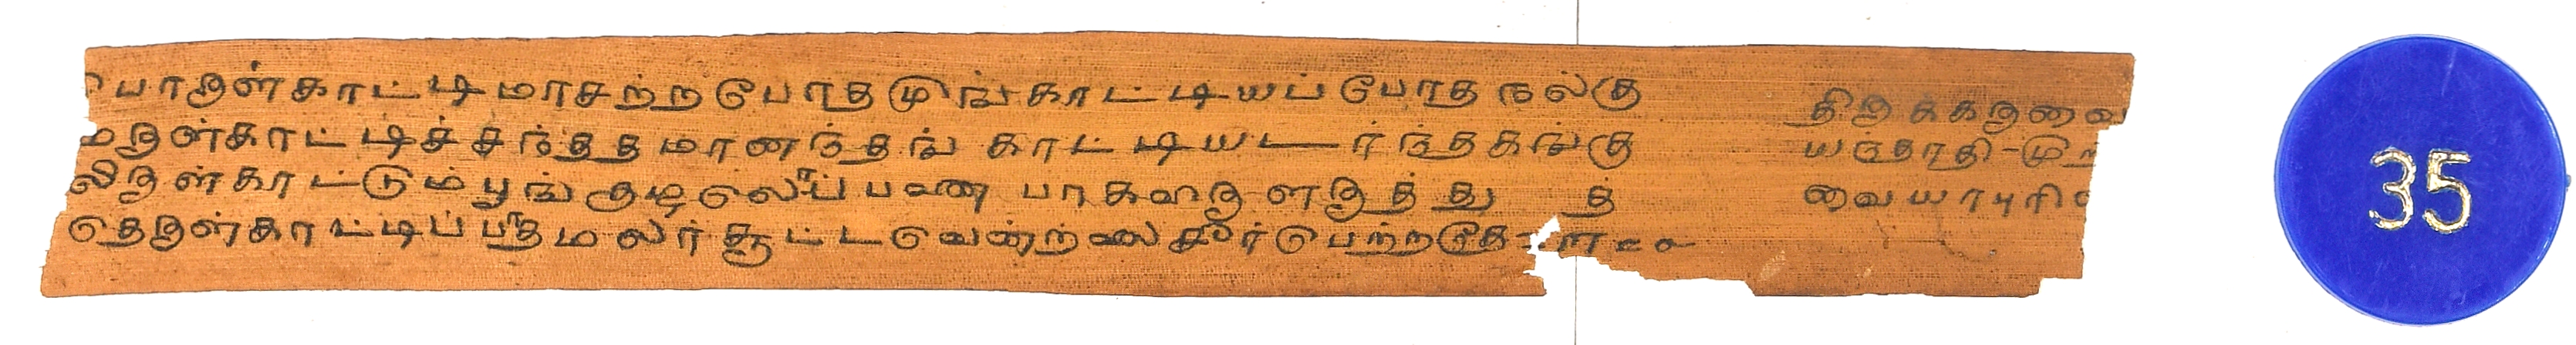 பொருள்காட்டிமாசற்றபோதமுங்காட்டியப்போதநல்கு
மருள்காட்டிச்சந்ததமானந்தங் காட்டியடர்ந்தகங்கு
லிருள்காட்டும்பூங்குழலொப்பண பாகனருளருத்து த்
தெருள்காட்டிப்பாதமலர்சூட்ட வென்ற சீர்பெற்றதே
திருக்கருவை
யந்தாதி-மு
வையாபுரி
35